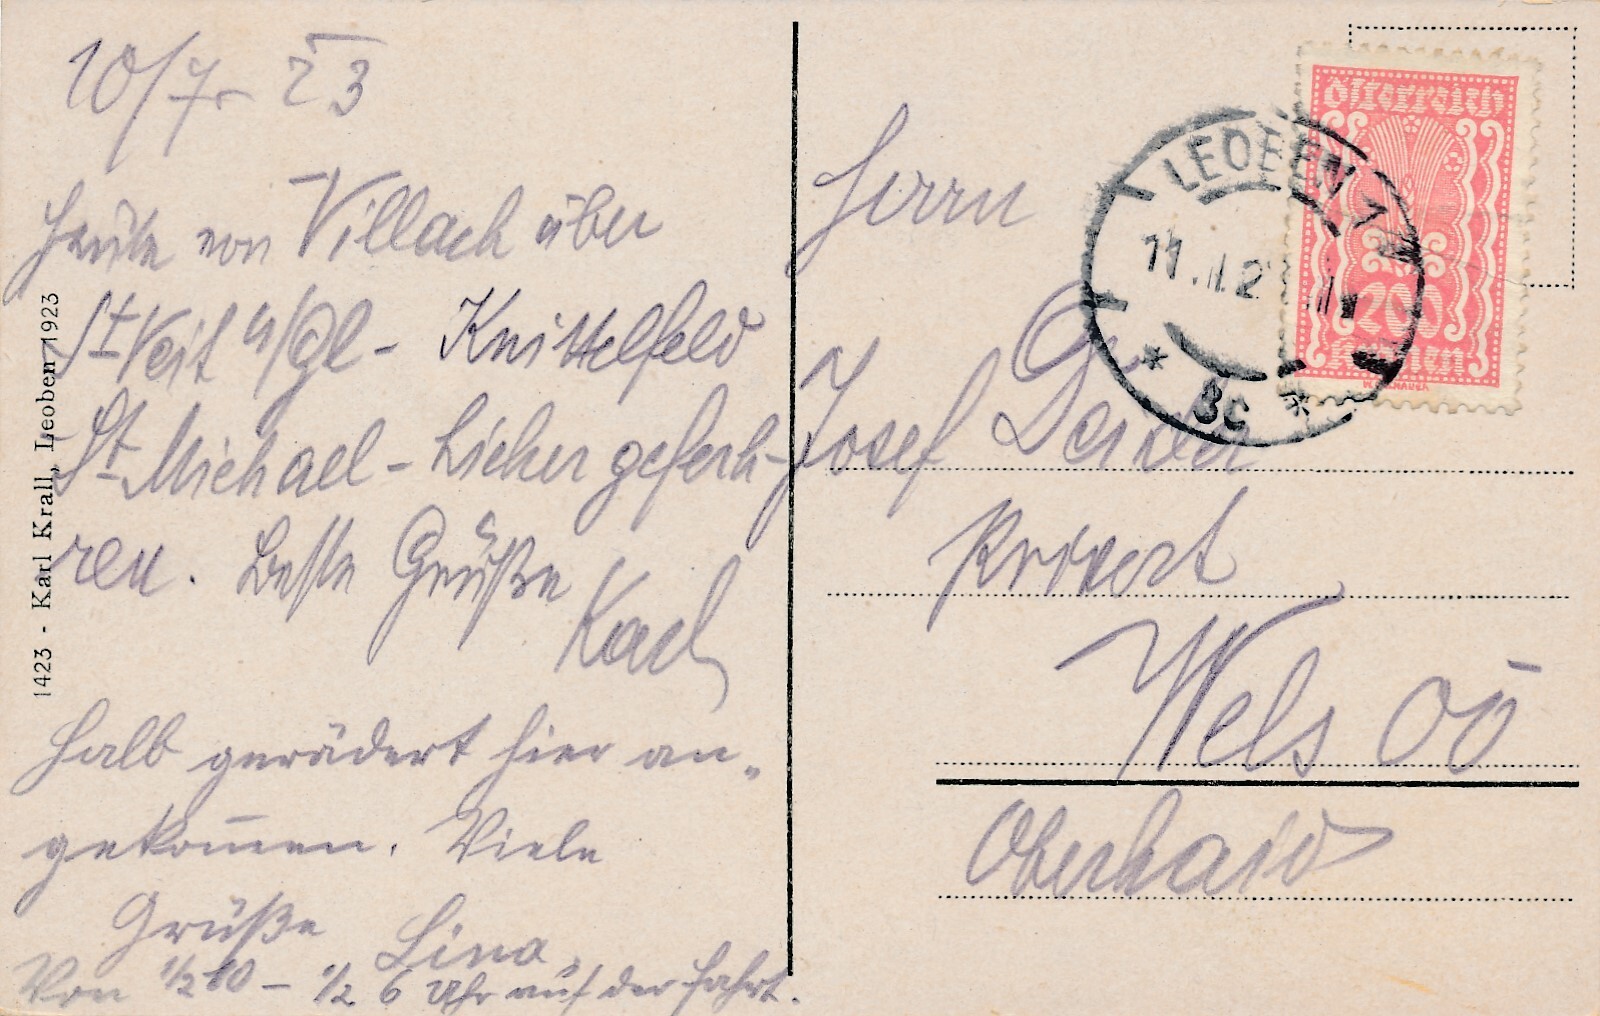 10/7. 23
Heute von Villach über
St Veit a/Gl - Knittelfeld
St. Michael - hieher gefah-
ren. Beste Grüße
Karl
Halb gerädert hier an-
gekommen. Viele
Grüße Lina.
Von 1/2 10 - 1/2 6 Uhr auf der Fahrt.
1423 - Karl Krall, Leoben 1923
Herrn
Josef
Privat
Wels OÖ
Oberhaid
LEOBEN 1
11.
* 3c *
Österreich
200
Kronen